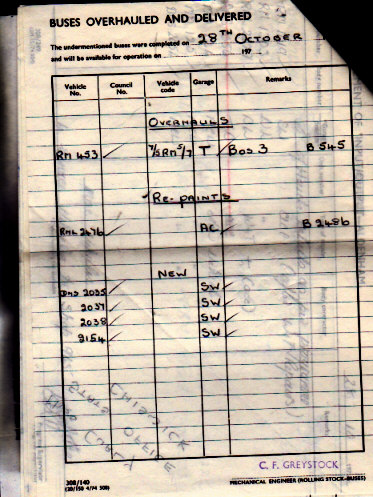 BUSES OVERHAULED AND DELIVERED
The undermentioned buses were completed on 28TH OCTOBER
and will be available for operation on 197
Vehicle No. Council No. Vehicle code Garage Remarks
OVERHAULS
RM 453 T BOS 3 B 545
RE-PAINTS
RML 2476 AC B 2486
NEW
DMS 2035 SW
2037 SW
2038 SW
2154 SW
CHISWICK
STATS OFFICE
COPY
C. F. GREYSTOCK
308/140
(20/150 4/74 50B)
MECHANICAL ENGINEER (ROLLING STOCK-BUSES)